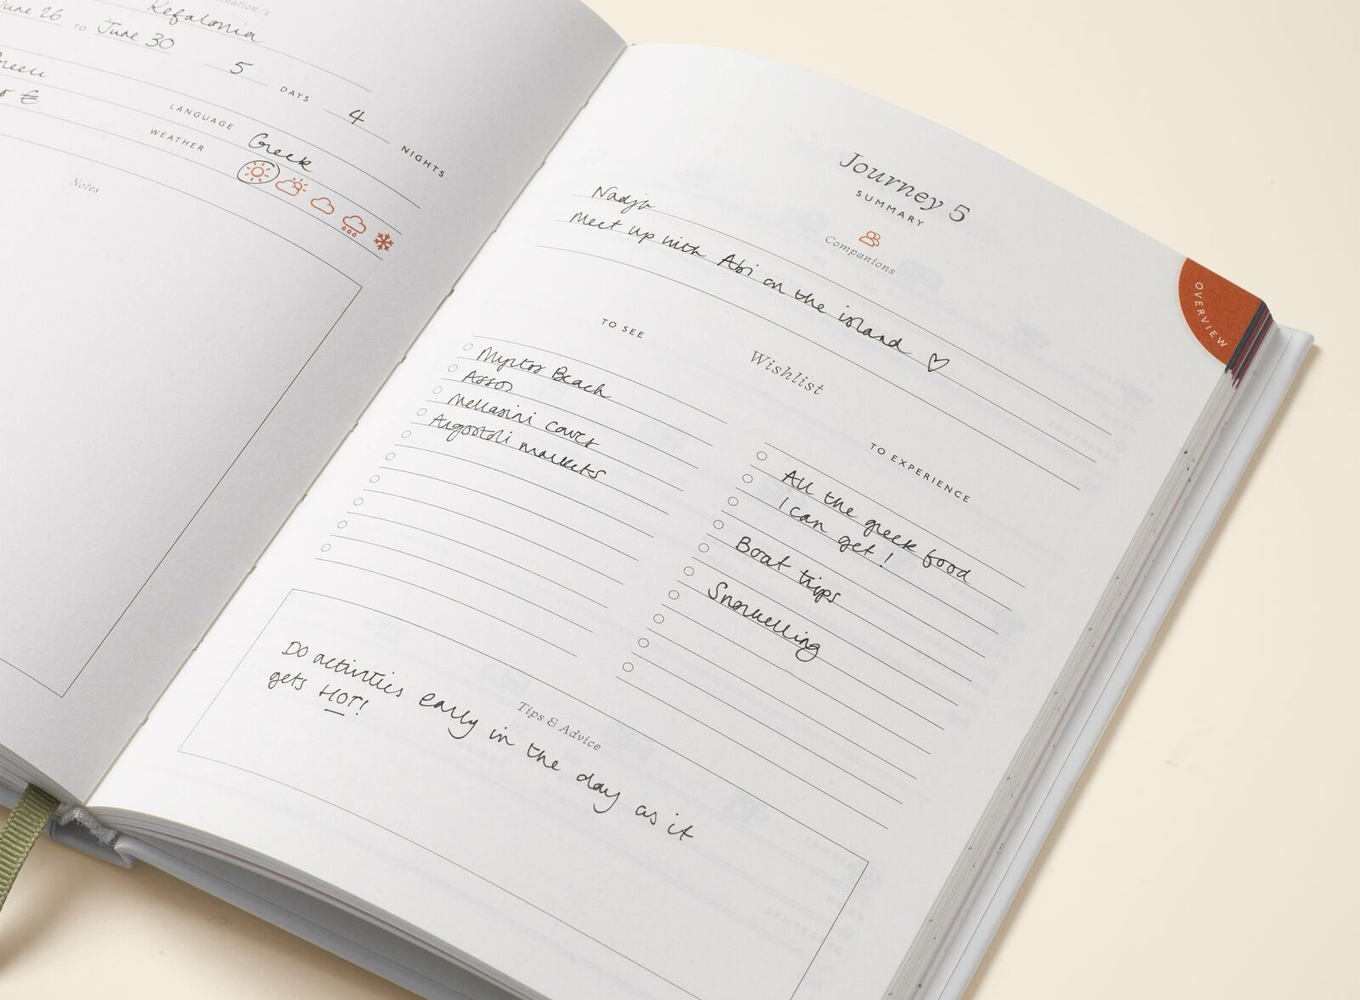 Kefalonia
June 26 TO June 30
5 DAYS 4 NIGHTS
€
LANGUAGE Greek
WEATHER
Notes
Journey 5
SUMMARY
Companions
Nadja
Meet up with Abi on the island ♡
Wishlist
TO SEE
Myrtos Beach
Assos
Mellasini caves
Argostoli markets
TO EXPERIENCE
All the greek food
I can get!
Boat trips
Snorkelling
Tips & Advice
Do activities early in the day as it
gets HOT!
OVERVIEW